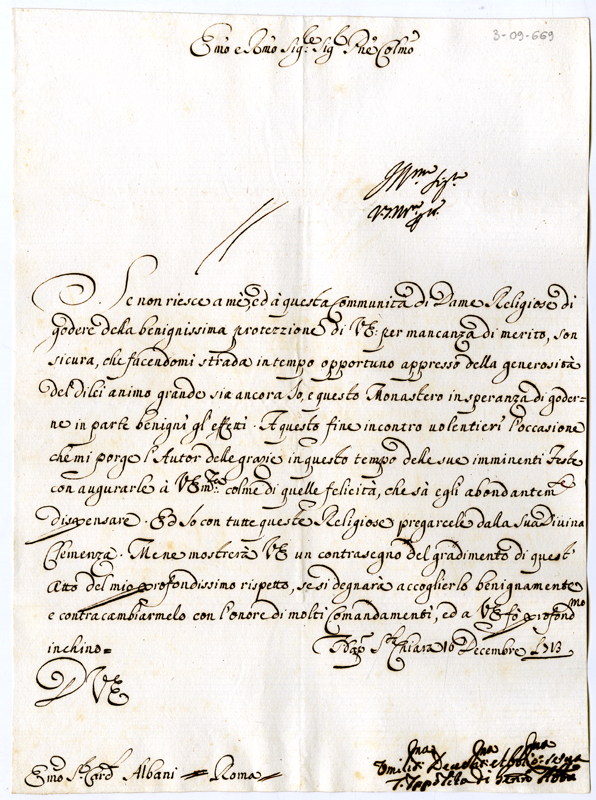 3-09-669
Emo e Rmo Sigre Sigr Pne Colmo
Se non riesce a mè, ed à questa Communità di Dame Religiose di
godere della benignissima protezzione di VE: per mancanza di merito, son
sicura, che facendomi strada in tempo opportuno appresso della generosità
del dilei animo grande sia ancora Io, e questo Monastero in speranza di goder=
ne in parte benigni gl'effetti. A questo fine incontro volentieri l'occasione
che mi porge l'Autor delle grazie in questo tempo delle sue imminenti Feste
con augurarle à VE colme di quelle felicità, che sà egli abondantemte
dispensare. Ed Io con tutte queste Religiose pregarcele dalla Sua Divina
Clemenza. Mene mostrerà VE un contrasegno del gradimento di quest'
atto del mio profondissimo rispetto, se si degnarà accoglierlo benignamente
e contracambiarmelo con l'onore di molti Comandamenti, ed a VE fò profondmo
inchino=
Sta Chiara 10 Decembre 1713
D VE
Emo Sr Card Albani = Roma